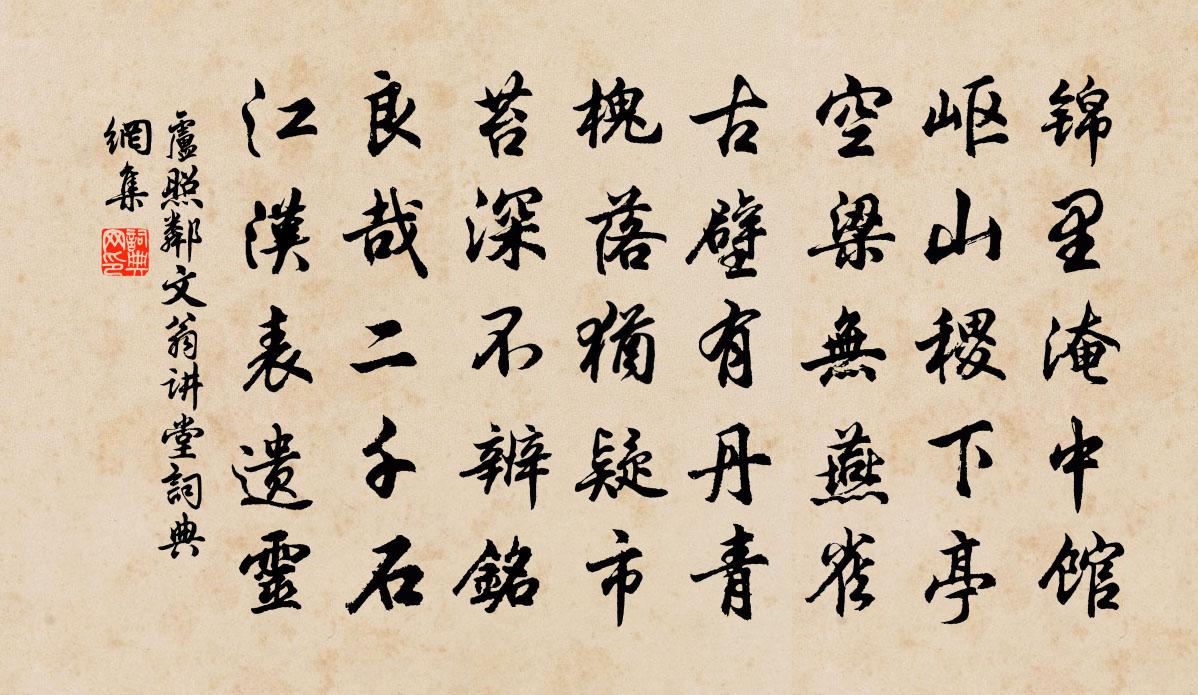 锦里淹中馆
岖山稷下亭
空梁無燕雀
古壁有丹青
槐落猶疑市
苔深不辨銘
良哉二千石
江漢表遗靈
盧照鄰文翁讲堂詞典
網集
詞典網印